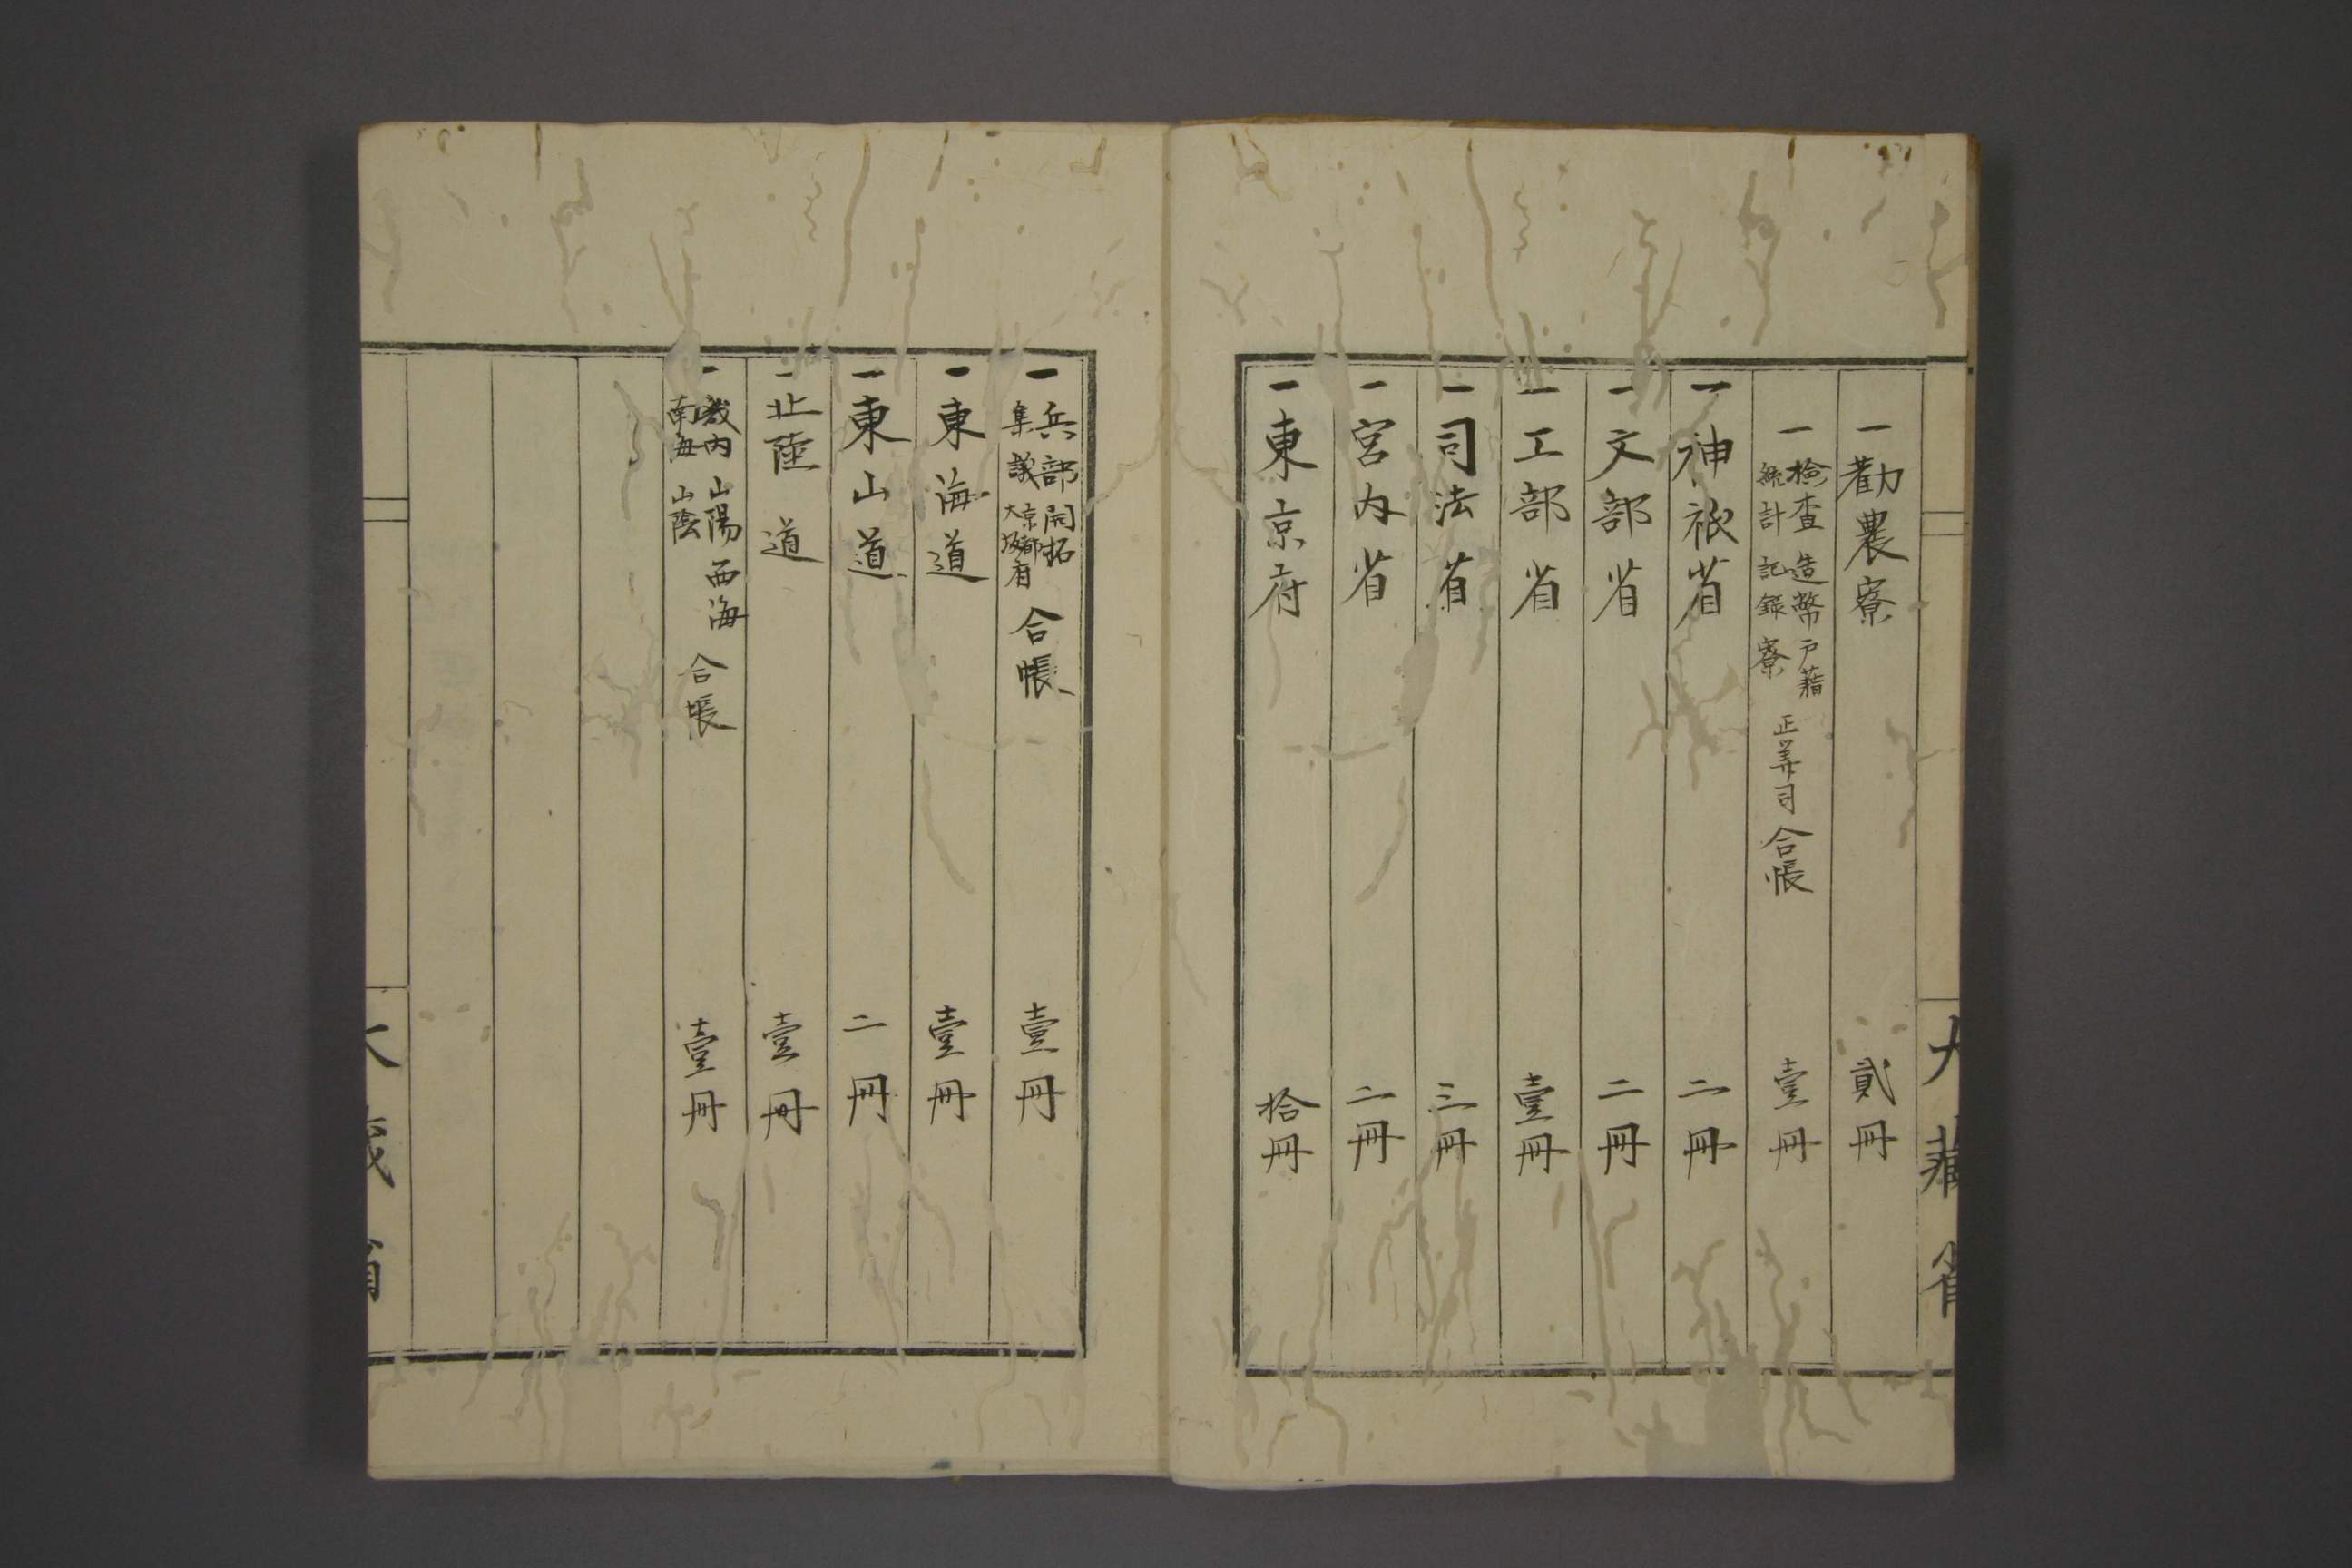 大藏省
一勸農寮 貳冊
一検査 造幣 戸籍
統計 記録寮
正算司 合帳 壹冊
一神祇省 二冊
一文部省 二冊
一工部省 壹冊
一司法省 三冊
一宮内省 二冊
一東京府 拾冊
一兵部 開拓
集議 京都
大坂府
合帳 壹冊
一東海道 壹冊
一東山道 二冊
一北陸道 壹冊
一畿内 山陽 西海
南海 山陰
合帳 壹冊
大藏省